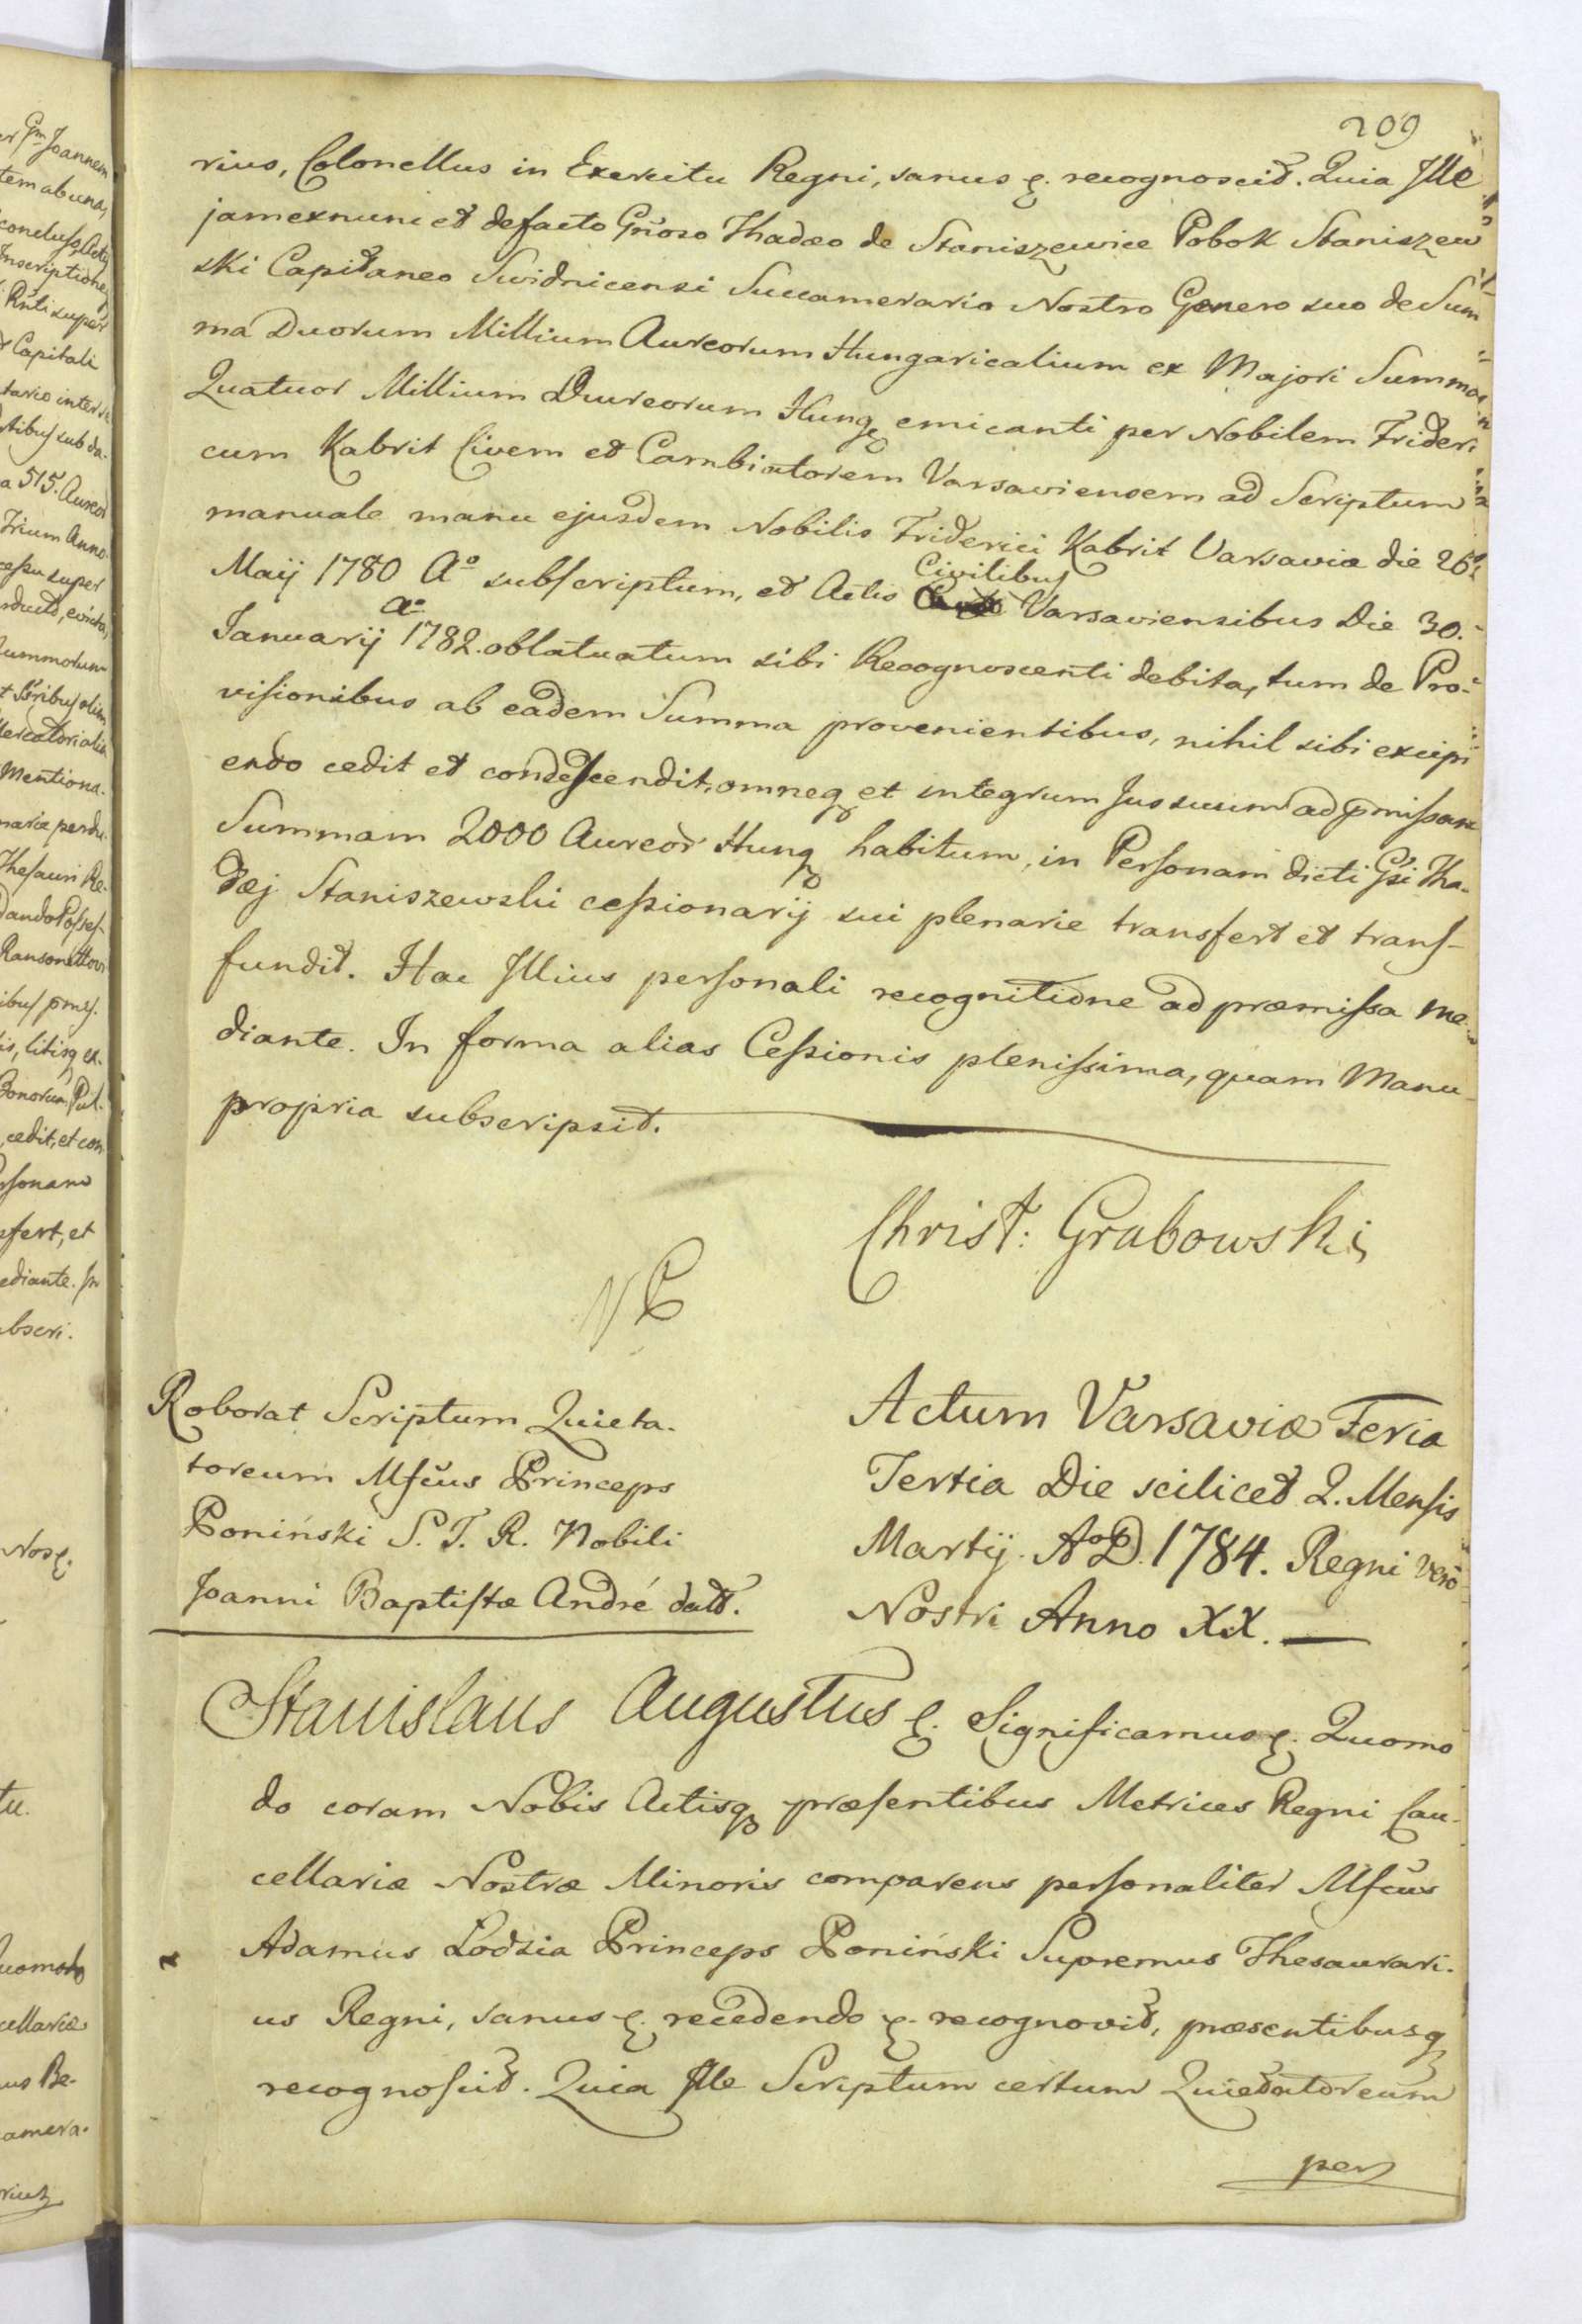 209
rius, Colonellus in Exercitu Regni, sanus &. recognoscit. Quia Ille
jam exnunc et de facto Gñoso Thadæo de Staniszewice Pobok Staniszew
ski Capitaneo Swidnicensi Succamerario Nostro Genero suo de Sum
ma Duorum Millium Aureorum Hungaricalium ex Majori Summa
Quatuor Millium Aureorum Hung emicanti per Nobilem Frideri
cum Kabrit Civem et Cambiatorem Varsaviensem ad Scriptum
manuale manu ejusdem Nobilis Friderici Kabrit Varsaviæ die 26
Maij 1780 Aº subscriptum, et Actis Civilibus Varsaviensibus Die 30.
Januarij aº 1782. oblatuatum sibi Recognoscenti debita, tum de Pro-
visionibus ab eadem Summa provenientibus, nihil sibi excipi
endo cedit et condescendit, omneq et integrum Jus suum ad pmissam
Summam 2000 Aureor Hung habitum, in Personam dicti Gsi Tha-
dæj Staniszewski cessionarij sui plenarie transfert et trans-
fundit. Hac Illius personali recognitione ad præmissa me-
diante. In forma alias Cessionis plenissima, quam Manu
propria subscripsit.
Christ: Grabowski
Roborat Scriptum Quieta-
toreum Mfcus Princeps
Poniński S. T. R. Nobili
Joanni Baptistæ André datt.
Actum Varsaviæ Feria
Tertia Die scilicet 2. Mensis
Martij. AºD. 1784. Regni verò
Nostri Anno XX.
Stanislaus Augustus &. Significamus &. Quomo
do coram Nobis Actisq præsentibus Metrices Regni Can-
cellariæ Nostræ Minoris comparens personaliter Mfcus
Adamus Lodzia Princeps Poniński Supremus Thesaurari-
us Regni, sanus &. recedendo &. recognovit, præsentibusq
recognoscit. Quia Ille Scriptum certum Quietatoreum
per